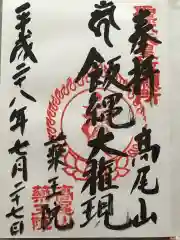 奉拝
高尾山
飯縄大権現
薬王院
平成二八年七月二十七日